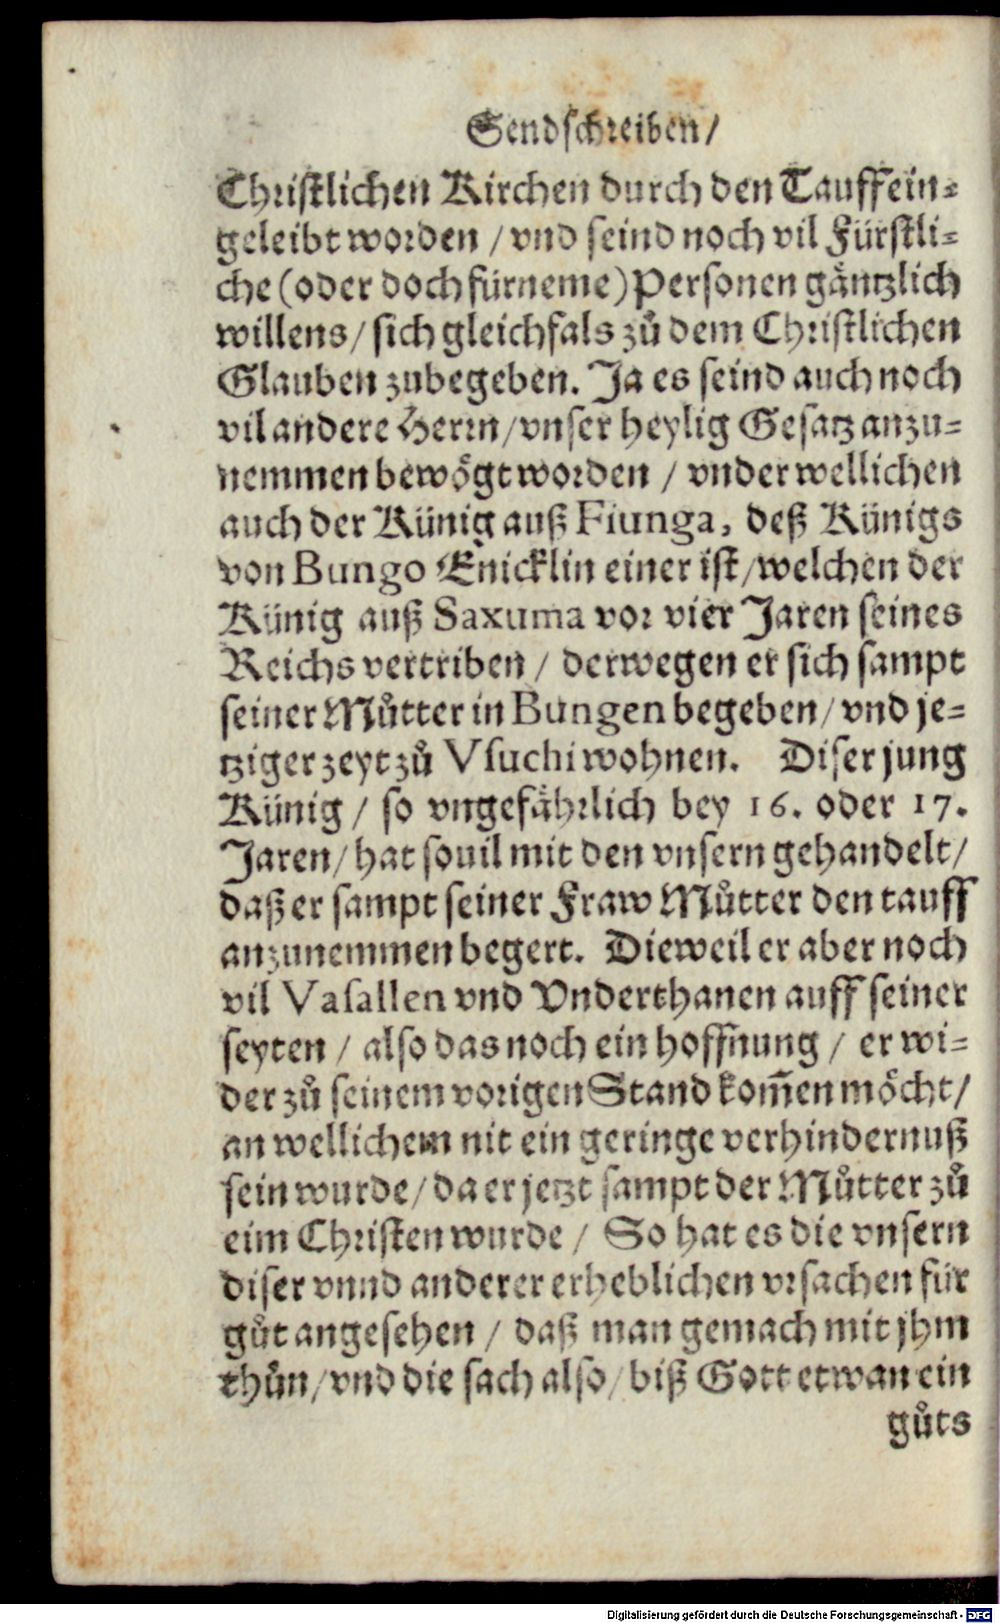 Sendschreiben/
Christlichen Kirchen durch den Tauff ein-
geleibt worden / vnd seind noch vil Fürstli-
che (oder doch fürneme) Personen gäntzlich
willens / sich gleichfals zů dem Christlichen
Glauben zubegeben. Ja es seind auch noch
vil andere Herrn / vnser heylig Gesatz anzu-
nemmen bewögt worden / vnder wellichen
auch der Künig auß Fiunga, deß Künigs
von Bungo Enicklin einer ist / welchen der
Künig auß Saxuma vor vier Jaren seines
Reichs vertriben / derwegen er sich sampt
seiner Můtter in Bungen begeben / vnd je-
tziger zeyt zů Vsuchi wohnen. Diser jung
Künig / so vngefährlich bey 16. oder 17.
Jaren / hat souil mit den vnsern gehandelt /
daß er sampt seiner Fraw Můtter den tauff
anzunemmen begert. Dieweil er aber noch
vil Vasallen vnd Vnderthanen auff seiner
seyten / also das noch ein hoffnung / er wi-
der zů seinem vorigen Stand kom̃en möcht /
an wellichem nit ein geringe verhindernuß
sein wurde / da er jetzt sampt der Můtter zů
eim Christen wurde / So hat es die vnsern
diser vnnd anderer erheblichen vrsachen für
gůt angesehen / daß man gemach mit jhm
thůn / vnd die sach also / biß Gott etwan ein
gůts
Digitalisierung gefördert durch die Deutsche Forschungsgemeinschaft - DFG